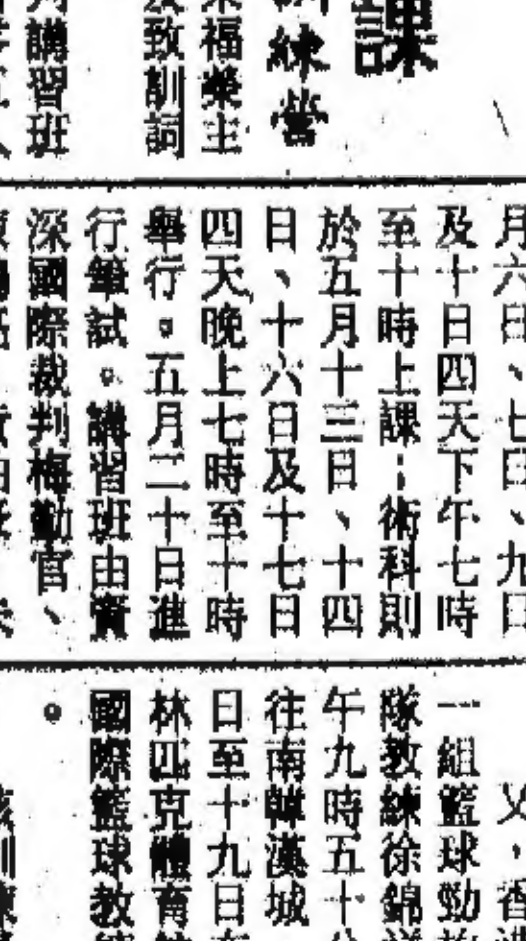 課
練營
榮主
致訓詞
講習班
月六日、七日、九日
及十日四天下午七時
至十時上課;術科則
於五月十三日、十四
日、十六日及十七日
四天晚上七時至十時
舉行。五月二十日進
行筆試。講習班由資
深國際裁判梅勳官、
又,香港
一組籃球勁
隊教練徐錦
午九時五十
往南韓漢城
日至十九日
林匹克體育
國際籃球教
。